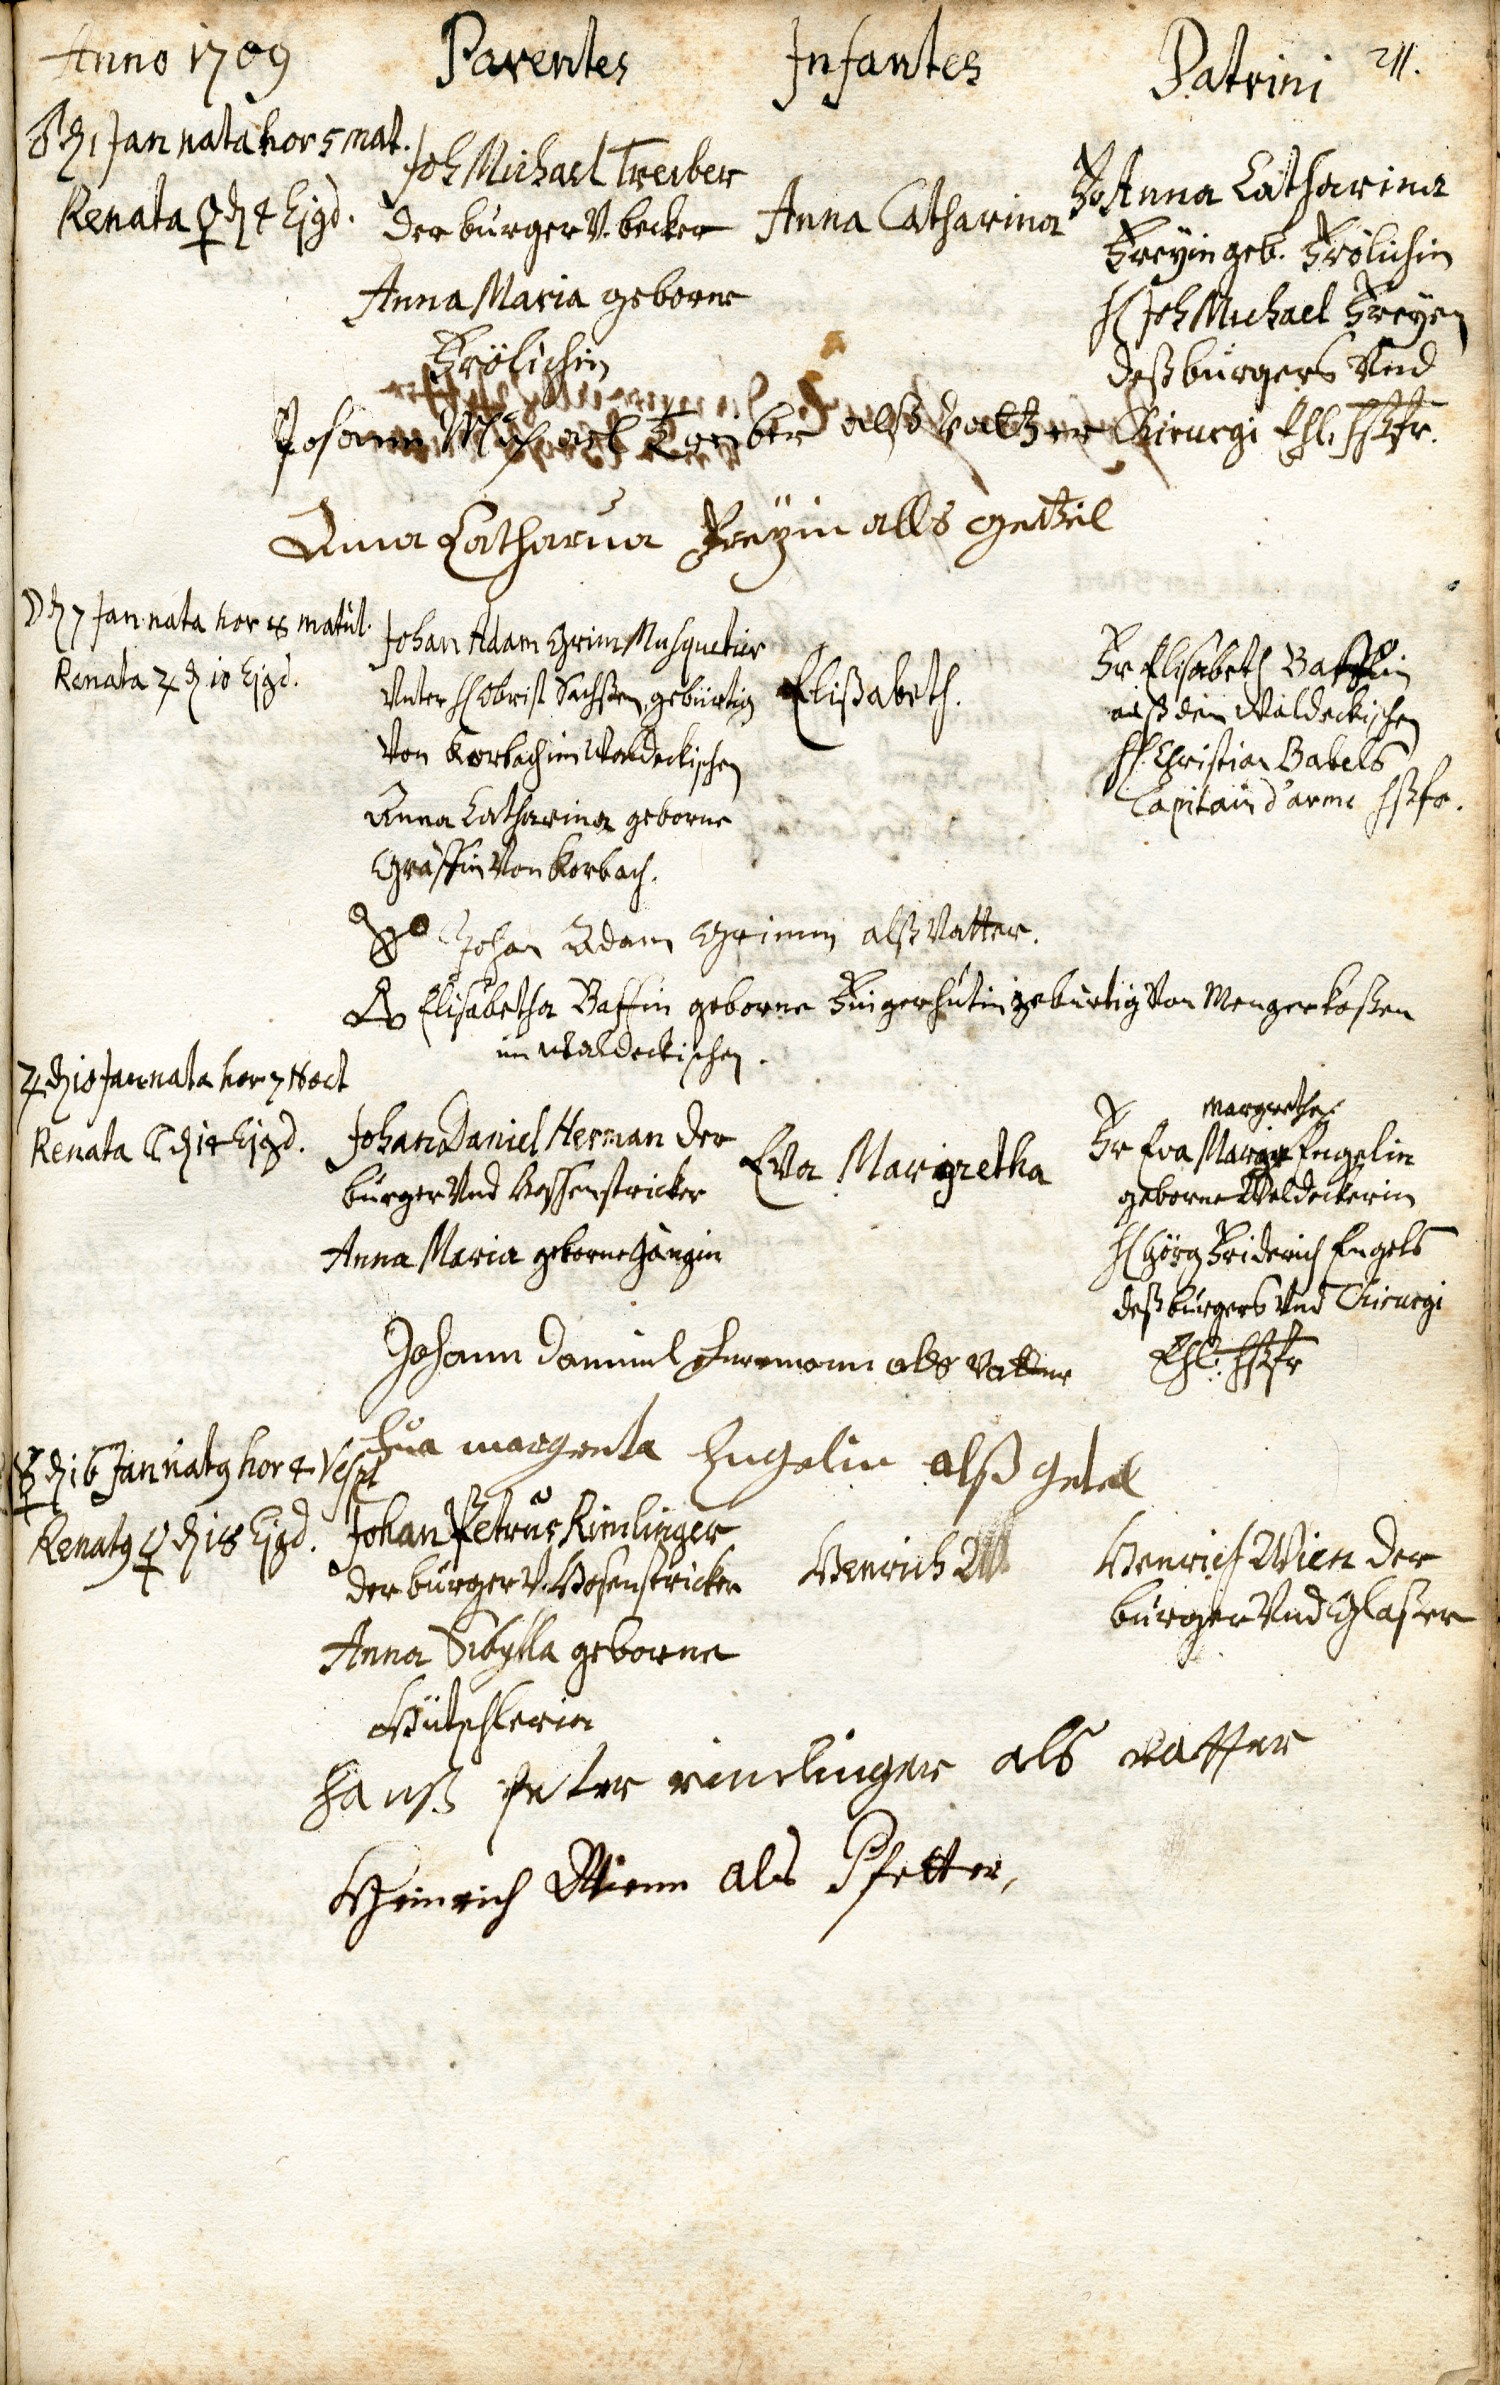 Anno 1709 Parentes Infantes Patrini 211.
♂ d 1 Jan nata hor 5 mat.
Renata ♀ d 4 Ejqd.
Joh Michael Treiber
der burger V. becker
Anna Maria geborne
Frölichin
Anna Catharina
Fr Anna Catharina
Freyin geb. Frölichin
H Joh Michael Freyen
deß burgers Vnd
Chirurgi Ehl. hßfr.
Johann Michael Treiber alß Vatter
Anna Catharina Freyin alls gettel
☽ d 7 Jan nata hor 8 matut.
Renata ♃ d 10 Ejqd.
Johan Adam Grim Musquetier
Vnter H Obrist Sachßen, gebürtig
Von Korbach im Waldeckischen
Anna Catharina geborne
Gräffin Von Korbach.
Elißabeth.
Fr Elisabeth Baffin
auß dem Waldeckischen
H. Christian Babels
Capitain d'arme hßfr.
Johan Adam Grimm alß Vatter.
Elisabetha Baffin geborne Fingerhütin gebürtig Von Mengerkoßen
im Waldeckischen.
♃ d 10 Jan nata hor 7 Noct
Renata d 14 Ejqd.
Johan Daniel Herman der
burger Vnd Hossenstricker
Anna Maria geborne Gängin
Eva Margretha
Margretha
Fr Eva Engelin
geborne Weldeckerin
H Görg Friderich Engels
deß burgers Vnd Chirurgi
Ehl. hßfr
Johann Daniel Herrmann als Vatter
Eva margreta Engelin alß getel
d 16 Jan natq hor 4 Vespt
Renatq ♀ d 18 Ejqd.
Johan Petrus Rimlinger
der burger V. Hosenstricker
Anna Sibylla geborne
Hütschlerin
Henrich
Henrich Wien der
burger Vnd Glaßer
hanß peter rimlinger als vatter
Heinrich Wienn als Pfetter,